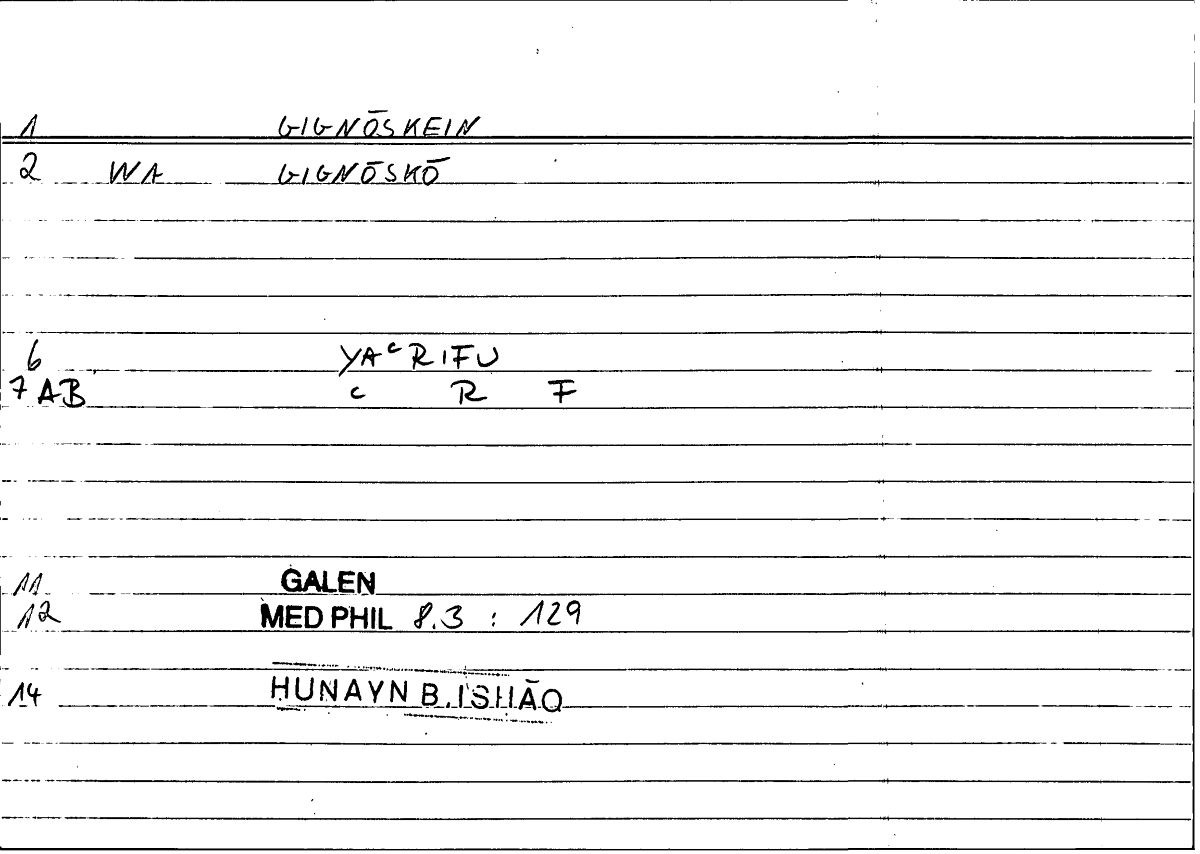 1 GIGNŌSKEIN
2 WA GIGNŌSKŌ
6 YAᶜRIFU
7 AB ᶜ R F
11 GALEN
12 MED PHIL 8.3 : 129
14 HUNAYN B. ISHĀQ